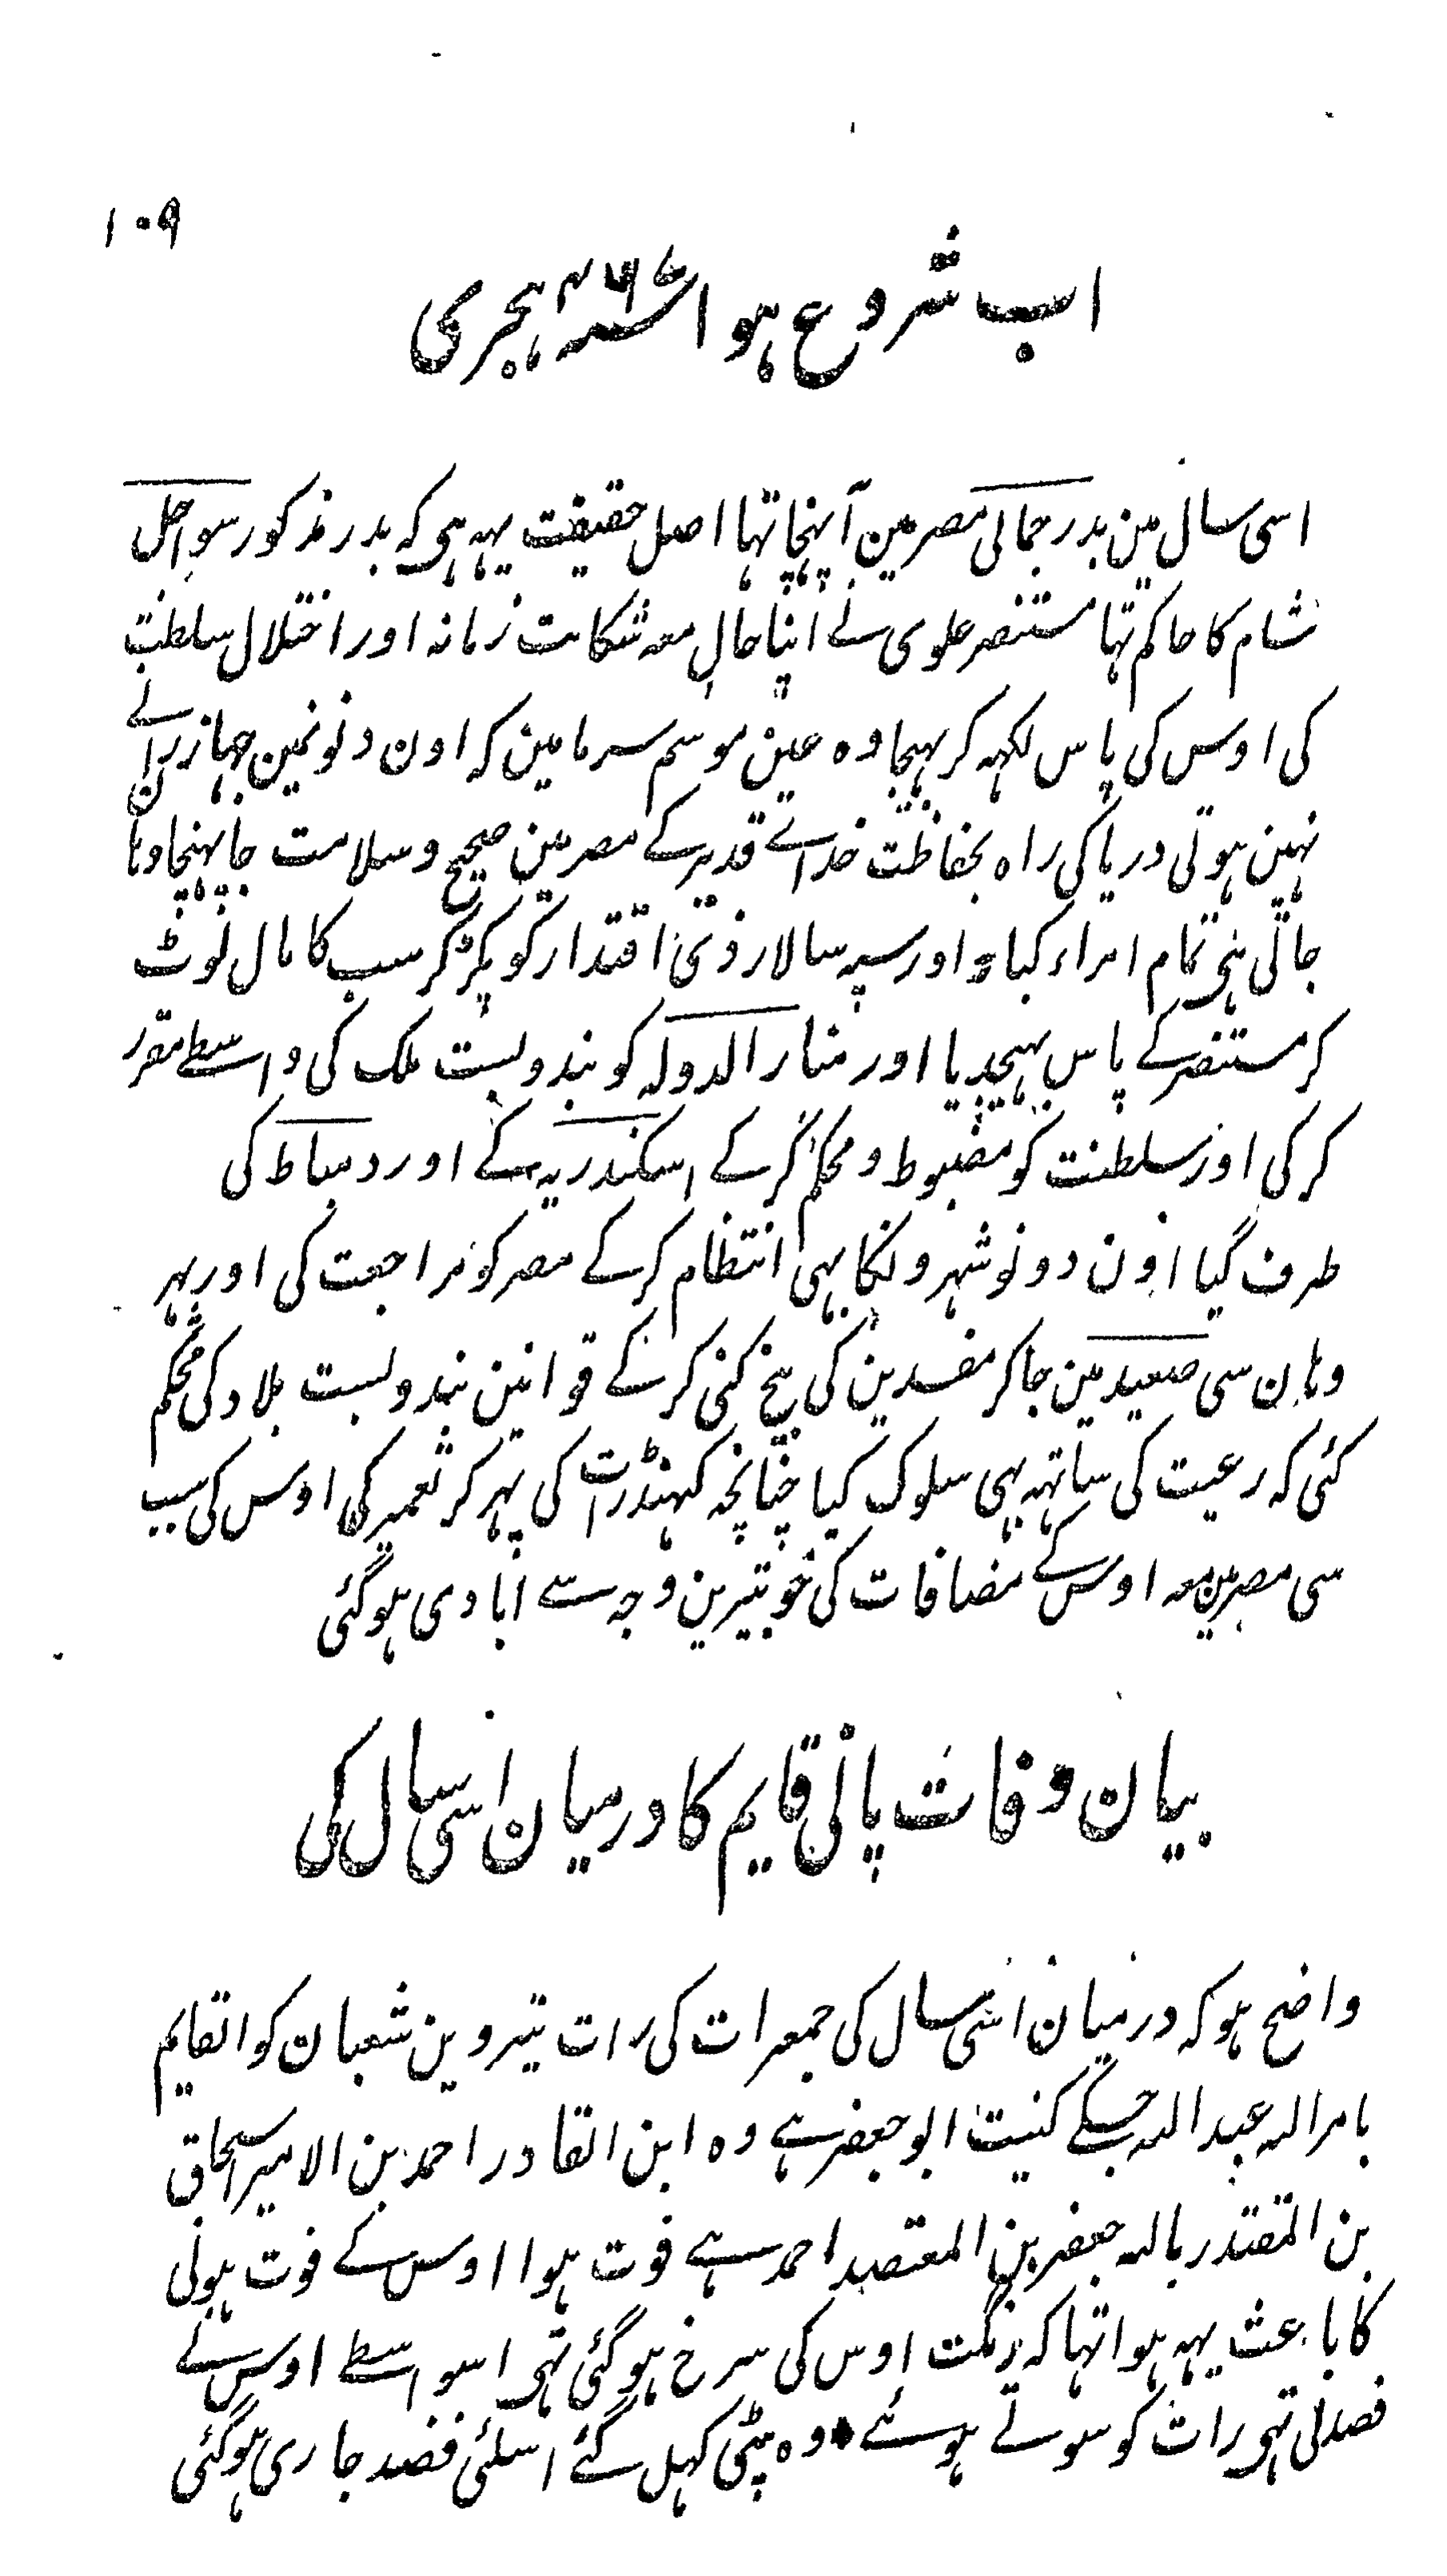 ۱۰۹
اب شروع ہوا سنہ ۴۶۷ ہجری
اسی سال مین بدر جمالی مصر مین آپہنچا تہا اصل حقیقت یہہ ہی کہ بدر مذکور سواحل
شام کا حاکم تہا مستنصر علوی نے اپنا حال معہ شکایت زمانہ اور اختلال سلطنت
کی اوس کی پاس لکہہ کر بہیجا وہ عین موسم سرما مین کہ اون دنونمین جہاز رانے
نہین ہوتی دریا کی راہ بحفاظت خدائے قدیر کے مصر مین صحیح و سلامت جا پہنچا وہان
جاتی ہی تمام امراء کبار اور سپہ سالار ذی اقتدار کو پکڑ کر سب کا مال لوٹ
کر مستنصر کے پاس بہیجدیا اور منار الدولہ کو بندوبست ملک کی واسطے مقرر
کر کی اور سلطنت کو مضبوط و محکم کر کے اسکندریہ کے اور دمیاط کی
طرف گیا اون دونو شہرونکا بہی انتظام کر کے مصر کو مراجعت کی اور پہر
وہان سی صعید مین جا کر مفسدین کی بیخ کنی کر کے قوانین بندوبست بلاد کی محکم
کئی کہ رعیت کی ساتہہ بہی سلوک کیا چنانچہ کہنڈرات کی پہر کر تعمیر کی اوس کی سبب
سی مصر مین معہ اوس کے مضافات کی خوبترین وجہ سے آبادی ہو گئی
بیان وفات پانی قایم کا درمیان اسی سال کی
واضح ہو کہ درمیان اسی سال کی جمعرات کی رات تیروین شعبان کو القایم
بامر الله عبد الله جسکے کنیت ابو جعفر ہے وہ ابن القادر احمد بن الامیر اسحاق
بن المقتدر بالله جعفر بن المعتضد احمد ہے فوت ہوا اوس کے فوت ہونی
کا باعث یہہ ہوا تہا کہ رنگت اوس کی سرخ ہو گئی تہی اسواسطے اوس نے
فصد لی تہی رات کو سوتے ہوئے وہ پٹی کہل گئے اسلئی فصد جاری ہو گئی